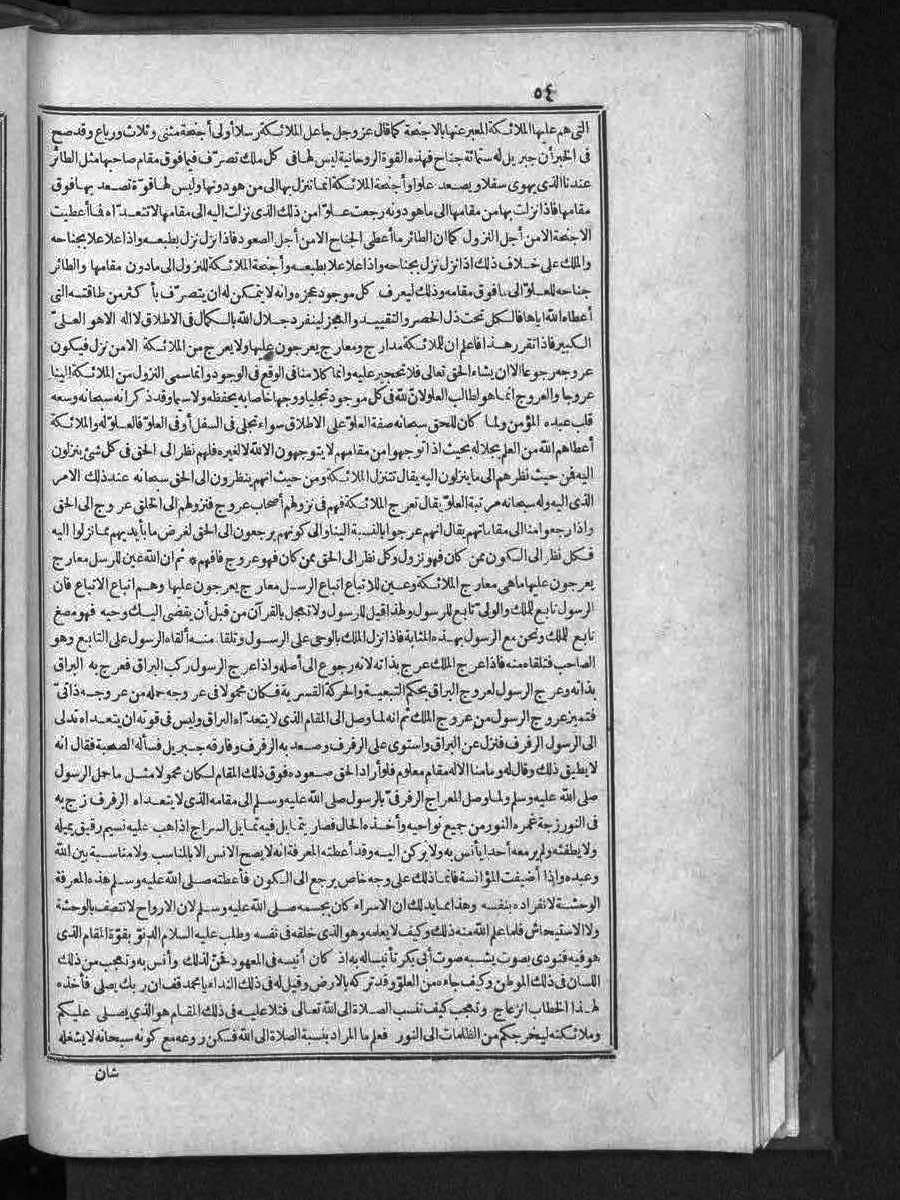 ٥٤
التي هم عليها الملائكة المعبر عنها بالاجنحة كما قال عز وجل جاعل الملائكة رسلا أولى أجنحة مثنى وثلاث ورباع وقد صح
فى الخبر أن جبريل له ستمائة جناح فهذه القوة الروحانية ليس لها فى كل ملك تصرّف فيما فوق مقام صاحبها مثل الطائر
عندنا الذى يهوى سفلا ويصعد علوا وأجنحة الملائكة انما تنزل بها الى من هو دونها وليس لها قوّة تصعد بها فوق
مقامها فاذا نزلت بها من مقامها الى ما هو دونه رجعت علوّا من ذلك الذى نزلت اليه الى مقامها لا تتعدّاه فما أعطيت
الاجنحة الامن أجل النزول كما ان الطائر ما أعطى الجناح الامن أجل الصعود فاذا نزل نزل بطبعه واذا علا علا بجناحه
والملك على خلاف ذلك اذا نزل نزل بجناحه واذا علا علا بطبعه وأجنحة الملائكة للنزول الى مادون مقامها والطائر
جناحه للعلوّ الى مافوق مقامه وذلك ليعرف كل موجود عجزه وانه لا يتمكن له ان يتصرّف بأكثر من طاقته التى
أعطاه الله اياها فالكل تحت ذل الحصر والتقييد والعجز لينفرد جلال الله بالكمال فى الاطلاق لااله الا هو العلىّ
الكبير فاذا تقرر هذا فاعلم ان للملائكة مدارج ومعارج يعرجون عليها ولا يعرج من الملائكة الامن نزل فيكون
عروجه رجوعا الا ان يشاء الحق تعالى فلا تحجير عليه وانما كلامنا فى الواقع فى الوجود وانما سمى النزول من الملائكة الينا
عروجا والعروج انما هو لطالب العلو لانّ لله فى كل موجود تجليا ووجها خاصا به يحفظه ولا سيما وقد ذكر انه سبحانه وسعه
قلب عبده المؤمن ولما كان للحق سبحانه صفة العلوّ على الاطلاق سواء تجلى فى السفل أو فى العلوّ فالعلوّ له والملائكة
أعطاهم الله من العلم بجلاله بحيث اذا توجهوا من مقامهم لا يتوجهون الا لله لا لغيره فلهم نظر الى الحق فى كل شئ ينزلون
اليه فمن حيث نظرهم الى ما ينزلون اليه يقال تتنزل الملائكة ومن حيث انهم ينظرون الى الحق سبحانه عند ذلك الامر
الذى اليه وله سبحانه مرتبة العلوّ يقال تعرج الملائكة فهم فى نزولهم أصحاب عروج فنزولهم الى الخلق عروج الى الحق
واذا رجعوا منا الى مقاماتهم يقال انهم عرجوا بالنسبة الينا والى كونهم يرجعون الى الحق لغرض ما بأيديهم مما نزلوا اليه
فكل نظر الى الكون ممن كان فهو نزول وكل نظر الى الحق ممن كان فهو عروج فافهم * ثم ان الله عين للرسل معارج
يعرجون عليها ما هى معارج الملائكة وعين للاتباع اتباع الرسل معارج يعرجون عليها وهم اتباع الاتباع فان
الرسول تابع للملك والولىّ تابع للرسول ولهذا قيل للرسول ولا تعجل بالقرآن من قبل أن يقضى اليك وحيه فهو مصغ
تابع للملك ونحن مع الرسول بهذه المثابة فاذا نزل الملك بالوحى على الرسول وتلقاه منه ألقاه الرسول على التابع وهو
الصاحب فتلقاه منه فاذا عرج الملك عرج بذاته لانه رجوع الى أصله واذا عرج الرسول ركب البراق فعرج به البراق
بذاته وعرج الرسول لعروج البراق بحكم التبعية والحركة القسرية فكان محمولا فى عروجه حمله من عروجه ذاتىّ
فتميز عروج الرسول من عروج الملك ثم انه لما وصل الى المقام الذى لا يتعدّاه البراق وليس فى قوته ان يتعداه تدلى
الى الرسول الرفرف فنزل عن البراق واستوى على الرفرف وصعد به الرفرف وفارقه جبريل فسأله الصحبة فقال انه
لا يطيق ذلك وقال له وما منا الا له مقام معلوم فلو أراد الحق صعوده فوق ذلك المقام لكان محمولا مثل ما حمل الرسول
صلى الله عليه وسلم ولما وصل المعراج الرفرفىّ بالرسول صلى الله عليه وسلم الى مقامه الذى لا يتعداه الرفرف زج به
فى النور زجة غمره النور من جميع نواحيه وأخذه الحال فصار يتمايل فيه تمايل السراج اذا هب عليه نسيم رقيق يميله
ولا يطفئه ولم ير معه أحدا يأنس به ولا يركن اليه وقد أعطته المعرفة انه لا يصح الانس الا بالمناسب ولا مناسبة بين الله
وعبده واذا أضيفت المؤانسة فانما ذلك على وجه خاص يرجع الى الكون فأعطته صلى الله عليه وسلم هذه المعرفة
الوحشة لانفراده بنفسه وهذا مما يدلك ان الاسراء كان بجسمه صلى الله عليه وسلم لان الارواح لا تتصف بالوحشة
ولا الاستيحاش فلما علم الله منه ذلك وكيف لا يعلمه وهو الذى خلقه فى نفسه وطلب عليه السلام الدنوّ بقوّة المقام الذى
هو فيه فنودى بصوت يشبه صوت أبى بكر تأنيسا له به اذ كان أنيسه فى المعهود فحنّ لذلك وأنس به وتعجب من ذلك
اللسان فى ذلك الموطن وكيف جاءه من العلوّ وقد تركه بالارض وقيل له فى ذلك النداء يا محمد قف ان ربك يصلى فأخذه
لهذا الخطاب انزعاج وتعجب كيف تنسب الصلاة الى الله تعالى فتلا عليه فى ذلك المقام هو الذى يصلى عليكم
وملائكته ليخرجكم من الظلمات الى النور فعلم ما المراد بنسبة الصلاة الى الله فسكن روعه مع كونه سبحانه لا يشغله
شان